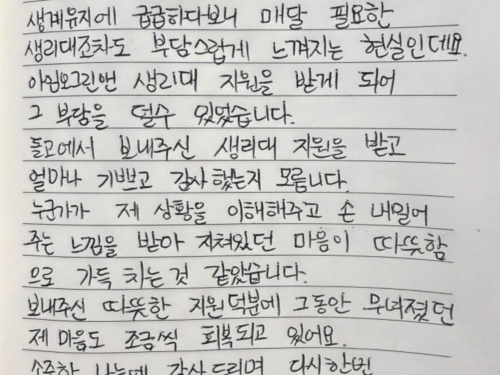 생계유지에 급급하다보니 매달 필요한
생리대조차도 부담스럽게 느껴지는 현실인데요.
아임오그린앤 생리대 지원을 받게 되어
그 부담을 덜수 있었습니다.
돌고에서 보내주신 생리대 지원을 받고
얼마나 기쁘고 감사했는지 모릅니다.
누군가가 제 상황을 이해해주고 손 내밀어
주는 느낌을 받아 지쳐있던 마음이 따뜻함
으로 가득 치는 것 같았습니다.
보내주신 따뜻한 지원 덕분에 그동안 무너졌던
제 마음도 조금씩 회복되고 있어요.
소중한 나눔에 감사드리며 다시한번